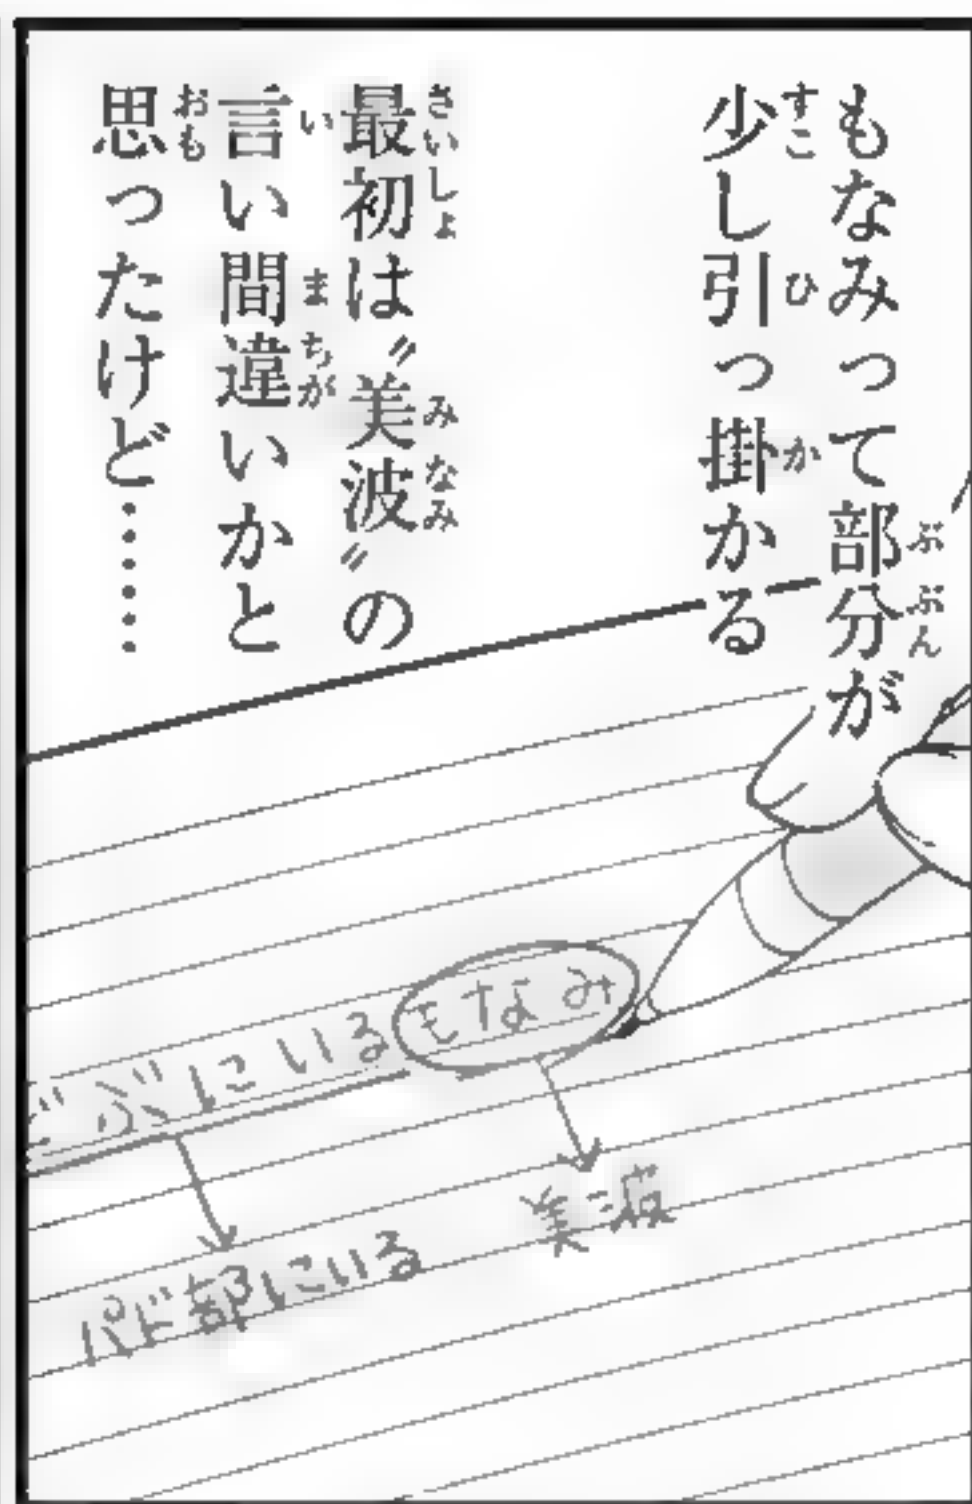 もなみって部分が
少し引っ掛かる
最初は〝美波〟の
言い間違いかと
思ったけど……
どぶにいるもなみ
美波
パド部にいる